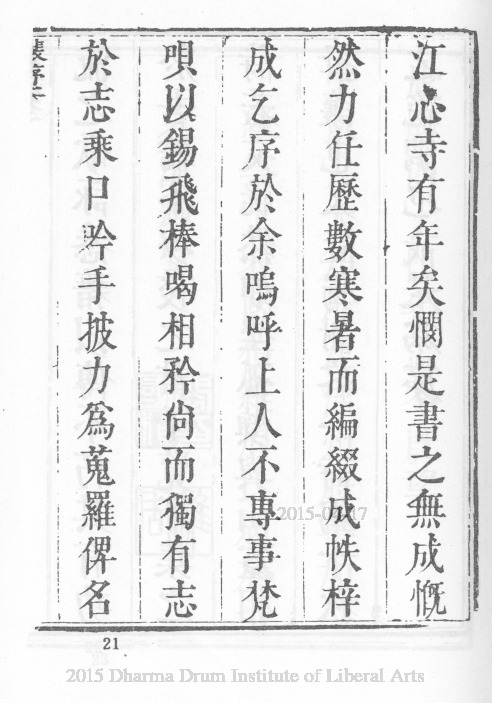 江心寺有年矣憫是書之無成慨
然力任歷數寒暑而編綴成帙梓
成乞序於余嗚呼上人不專事梵
唄以錫飛棒喝相矜尙而獨有志
於志乘口吟手披力爲蒐羅俾名
21
2015 Dharma Drum Institute of Liberal Arts